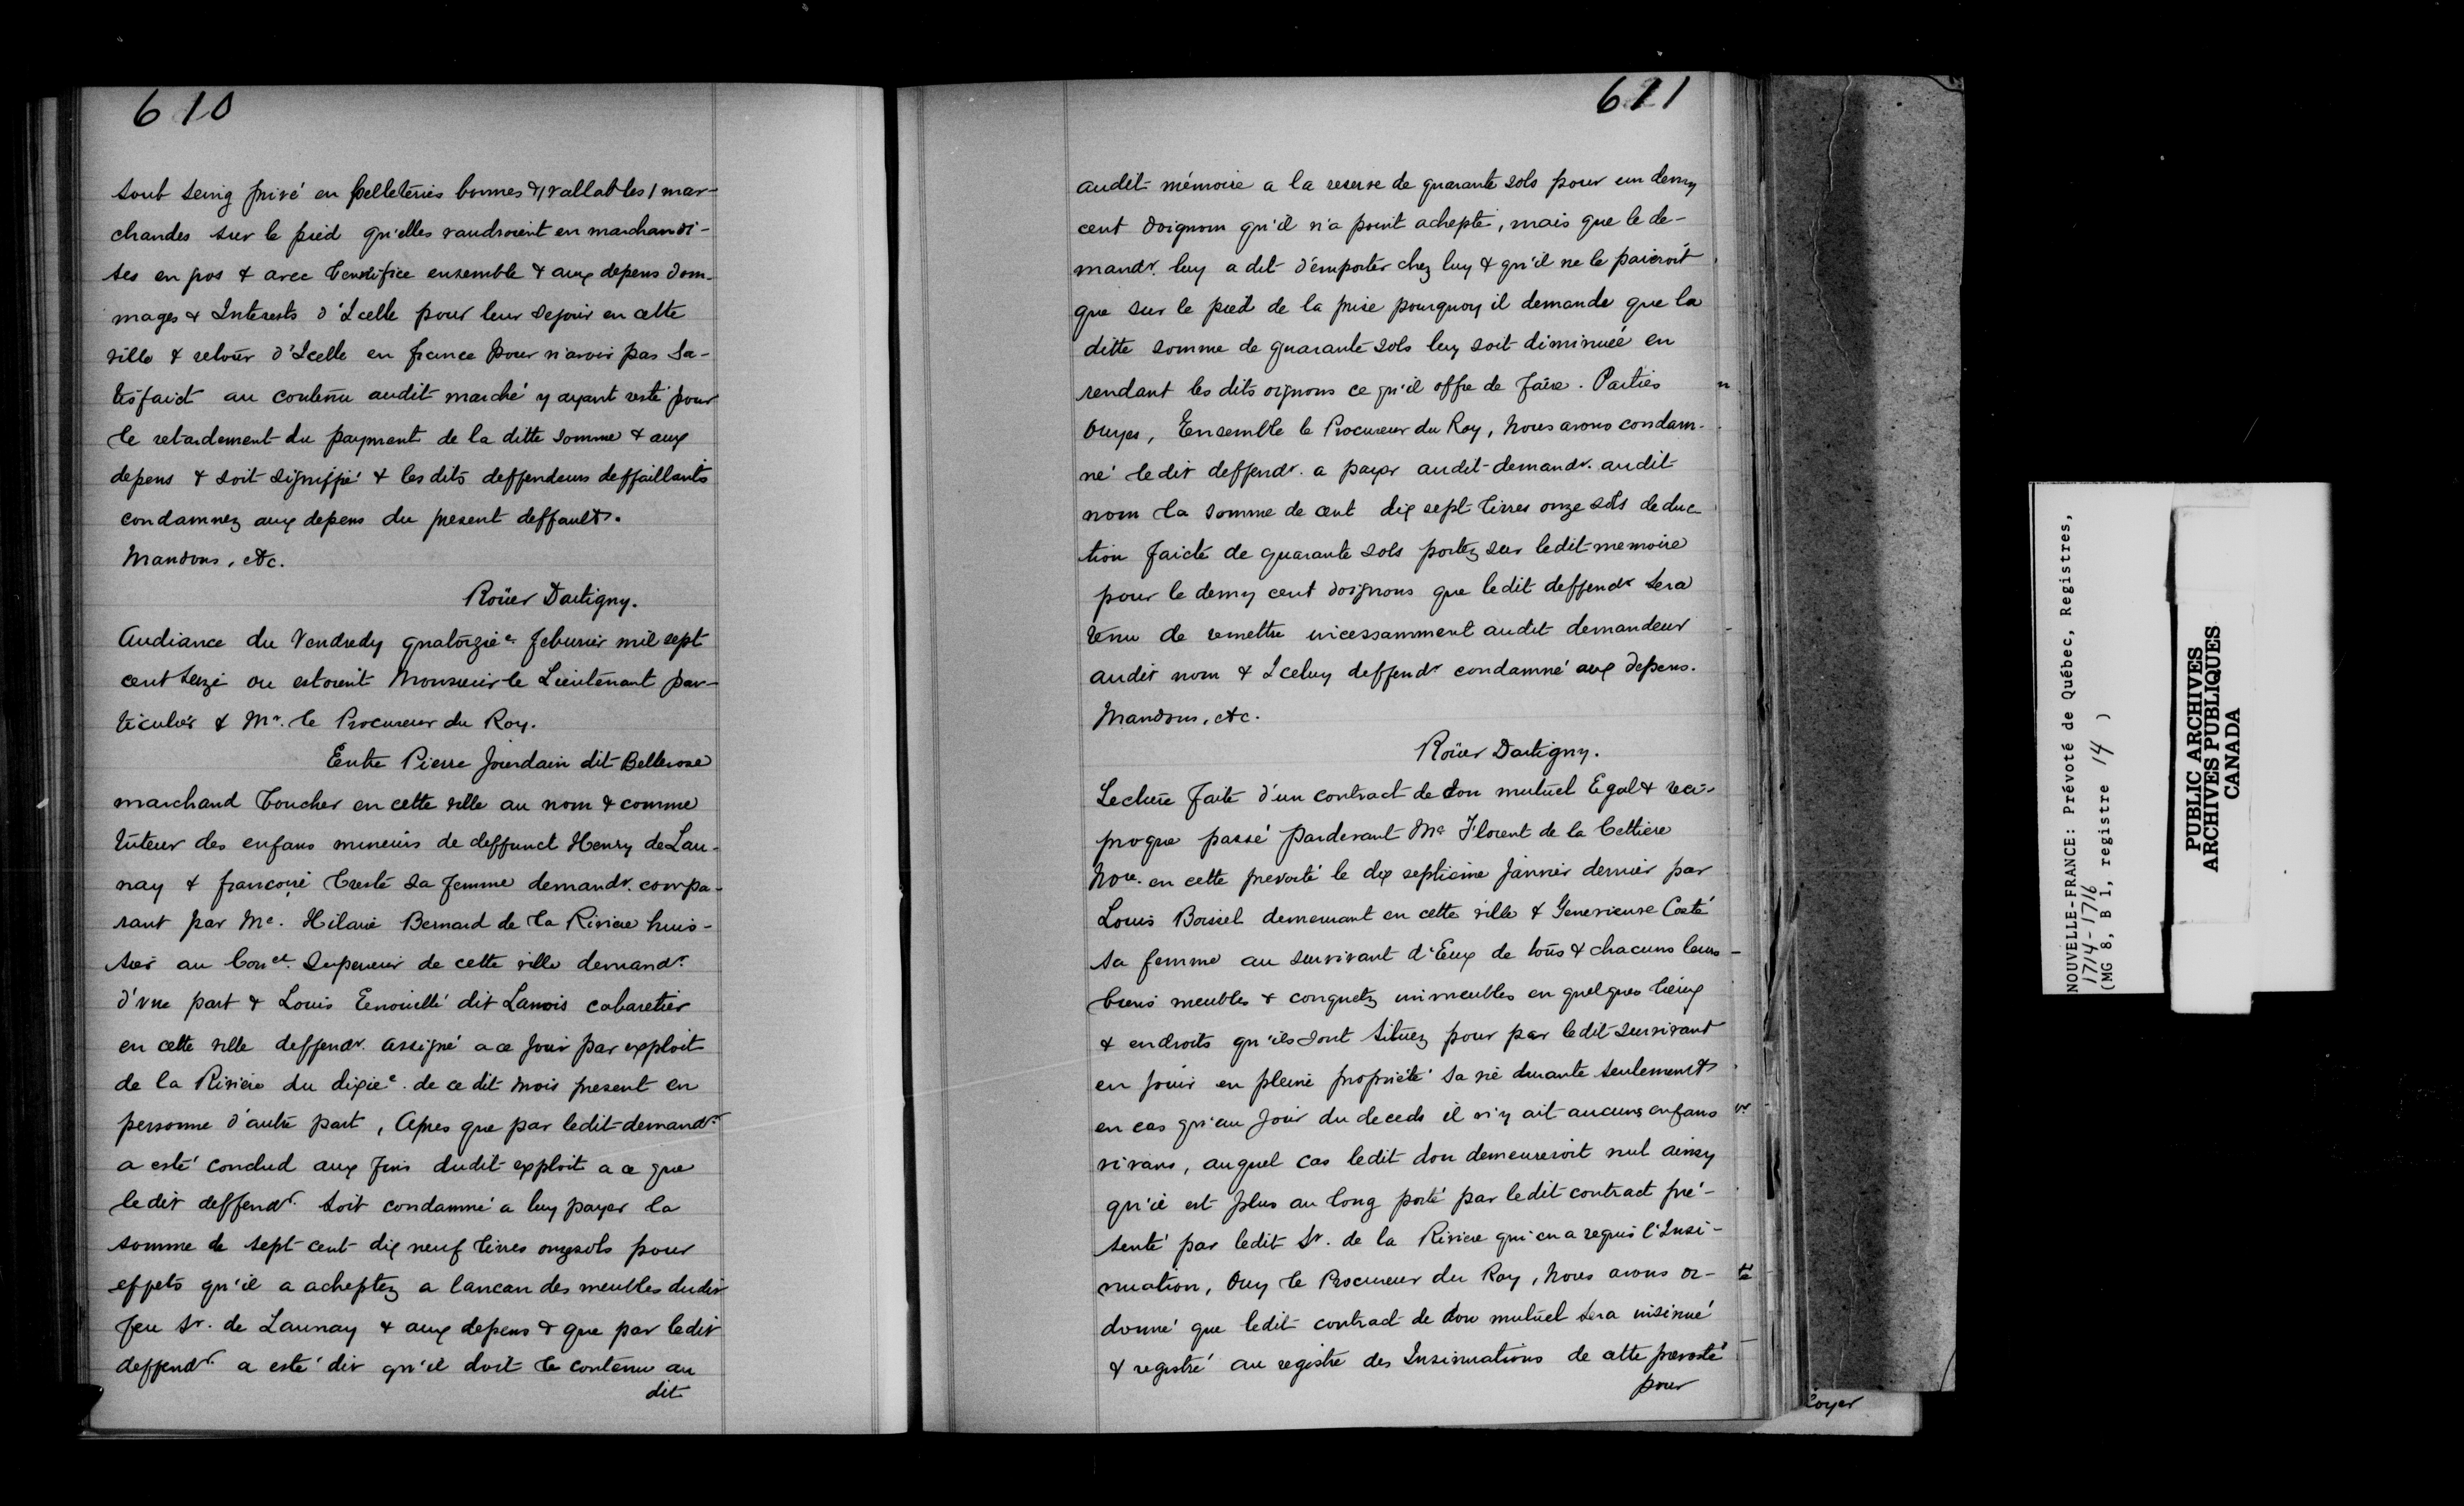 610
soub seing privé en pelleteries bonnes & vallables / mar-
chandes sur le pied qu'elles vaudroient en marchandi-
ses en gros & avec benefice ensemble & aux depens dom-
mages & Interests d'Icelle pour leur sejour en cette
ville & retour d'Icelle en france pour n'avoir pas sa-
tisfaict au contenu audit marché y ayant resté pour
le retardement du payment de la ditte somme & aux
depens & soit signiffié & les dits deffendeurs deffaillants
condamnez aux depens du present deffault.
Mandons, etc.
Roüer Dartigny.
Audiance du Vendredy quatorzie. feburier mil sept
cent seize ou estoient Monsieur le Lieutenant par-
ticulier & Mr. le Procureur du Roy.
Entre Pierre Jourdain dit Bellerose
marchand boucher en cette ville au nom & comme
tuteur des enfans mineurs de deffunct Henry de Lau-
nay & francoise Creste sa femme demandr. compa-
rant par Me. Hilaire Bernard de la Riviere huis-
sier au Conel. Superieur de cette ville demandr.
d'vne part & Louis Enouillé dit Lanois cabaretier
en cette ville deffendr. assigné a ce jour par exploit
de la Riviere du dixie. de ce dit mois present en
personne d'autre part, Apres que par ledit demandr.
a esté conclud aux fins dudit exploit a ce que
ledit deffendr. soit condamné a luy payer la
somme de sept cent dix neuf livres onze sols pour
effets qu'il a acheptez a lancan des meubles dudit
feu Sr. de Launay & aux depens & que par ledit
deffendr. a esté dit qu'il doit le contenu au
dit
611
audit mémoire a la reserve de quarante sols pour un demy
cent doignom qu'il n'a point achepté, mais que le de-
mandr. luy a dit d'emporter chez luy & qu'il ne le paieroit
que sur le pied de la prise pourquoy il demande que la
ditte somme de quarante sols luy soit diminuée en
rendant les dits oignons ce qu'il offre de faire. Parties
Ouyes, Ensemble le Procureur du Roy, Nous avons condam-
né ledit deffendr. a payer audit demandr. audit
nom la somme de cent dix sept livres onze sols deduc-
tion faicte de quarante sols portez sur ledit memoire
pour le demy cent doignons que ledit deffendr sera
tenu de remettre incessamment audit demandeur
audit nom & Iceluy deffendr condamné aux depens.
Mandons, etc.
Roüer Dartigny.
Lecture faite d'un contract de don mutuel Egal & reci-
proque passé pardevant Me Florent de la Cettiere
Nore. en cette prevosté le dix septieme Janvier dernier par
Louis Boissel demeurant en cette ville & Genevieuve Costé
sa femme au survivant d'Eux de tous & chacuns leurs
biens meubles & conquetz immeubles en quelques lieux
& endroits qu'ils sont situez pour par ledit survivant
en jouir en pleine propriété sa vie durante seulement
en cas qu'au jour du deceds il n'y ait aucuns enfans
vivans, auquel cas ledit don demeureroit nul ainsy
qu'il est plus au long porté par ledit contract pré-
senté par ledit Sr. de la Riviere qui en a requis l'Insi-
nuation, Ouy le Procureur du Roy, Nous avons or-
donné que ledit contract de don mutuel sera insinué
& registré au registre des Insinuations de cette prevosté
pour
loyer
NOUVELLE-FRANCE: Prévoté de Québec, Registres,
1714-1716
(MG 8, B 1, registre 14 )
PUBLIC ARCHIVES
ARCHIVES PUBLIQUES
CANADA